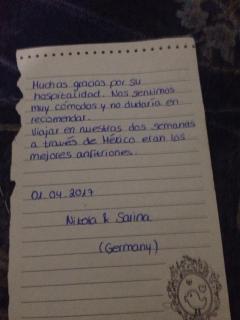 Muchas gracias por su
hospitalidad. Nos sentimos
muy cómodos y no dudaría en
recomendar.
Viajar en nuestras dos semanas
a través de México eran los
mejores anfitriones.
01.04.2017
Nikola & Sarina
(Germany)